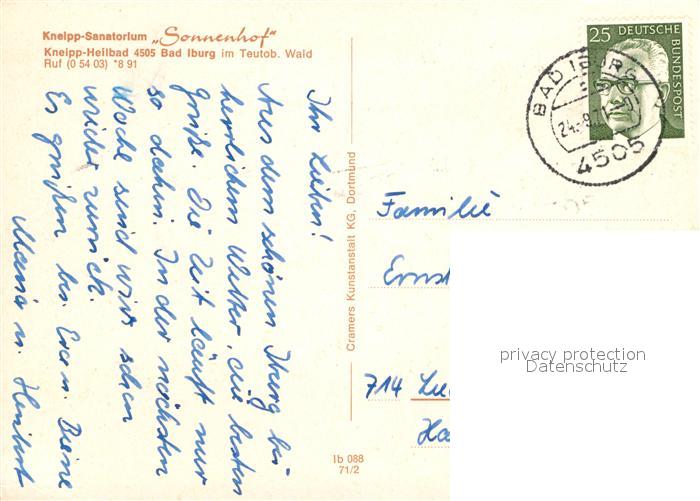 Kneipp-Sanatorium „Sonnenhof"
Kneipp-Heilbad 4505 Bad Iburg im Teutob. Wald
Ruf (0 54 03) *8 91
Ihr Lieben!
Aus dem schönen Iburg bei
herrlichem Wetter, die besten
Grüße. Die Zeit läuft nur
so dahin. In der nächsten
Woche sind wir schon
wieder zurück.
Es grüßen
Maria u. Heribert
Cramers Kunstanstalt KG, Dortmund
Ib 088
71/2
25 DEUTSCHE
BUNDESPOST
BAD IBURG
4505
Familie
Ernst
714
privacy protection
Datenschutz